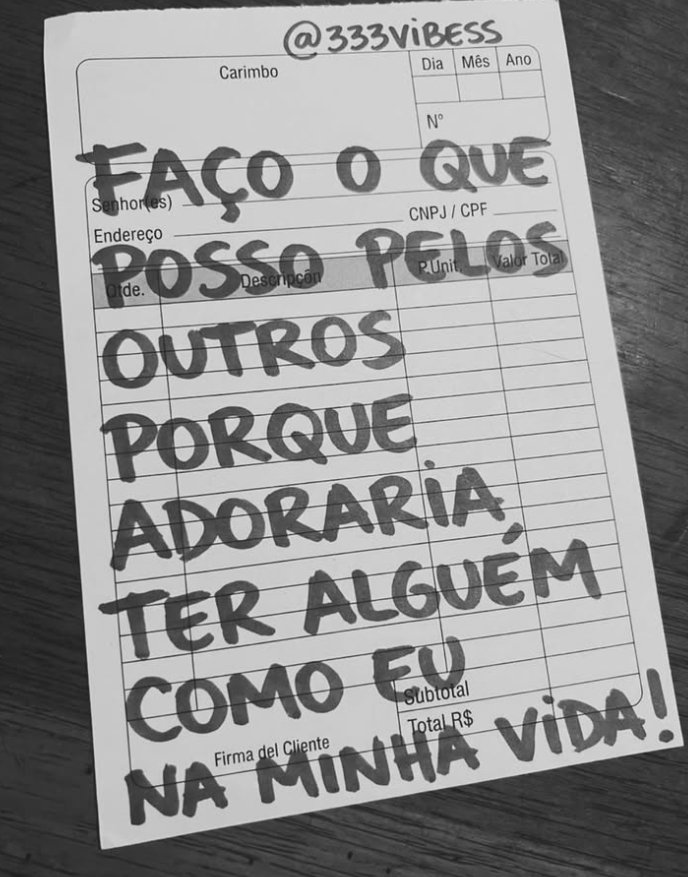 @333ViBESS
Carimbo
Dia Mês Ano
N°
FAÇO O QUE
Senhor(es)
CNPJ / CPF
Endereço
POSSO PELOS
Qtde. Descripçôn P.Unit. Valor Total
OUTROS
PORQUE
ADORARiA
TER ALGUÉM
COMO EU
Subtotal
Total R$
Firma del Cliente
NA MINHA ViDA!